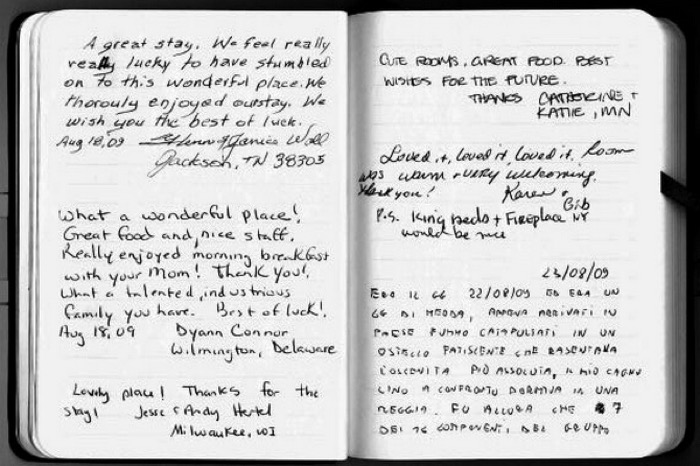 A great stay. We feel really
really lucky to have stumbled
on to this wonderful place. We
thorouly enjoyed our stay. We
wish you the best of luck.
Aug 18, 09 Glenn & Janice Woll
Jackson, TN 38305
What a wonderful place!
Great food and nice staff.
Really enjoyed morning breakfast
with your Mom! Thank you!
What a talented, industrious
family you have. Best of luck!
Aug 18, 09 Dyann Connor
Wilmington, Delaware
Lovely place! Thanks for the
stay! Jesse & Andy Hertel
Milwaukee, WI
CUTE ROOMS. GREAT FOOD. BEST
WISHES FOR THE FUTURE.
THANKS CATHERINE +
KATIE, MN
Loved it, loved it, loved it. Room
was warm + very welcoming.
Thank you! Karen +
Bib
P.S. King beds + Fireplace
would be nice
23/08/09
ERA IL GG 22/08/09 ED ERA UN
GG DI MERDA, APPENA ARRIVATI IN
PAESE FUMMO CATAPULTATI IN UN
OSTELLO FATISCENTE CHE RASENTAVA
L'OSCENITÀ PIÙ ASSOLUTA, IL MIO CAGNO
LINO A CONFRONTO DORMIVA IN UNA
REGGIA. FU ALLORA CHE 7
DEI 16 COMPONENTI DEL GRUPPO